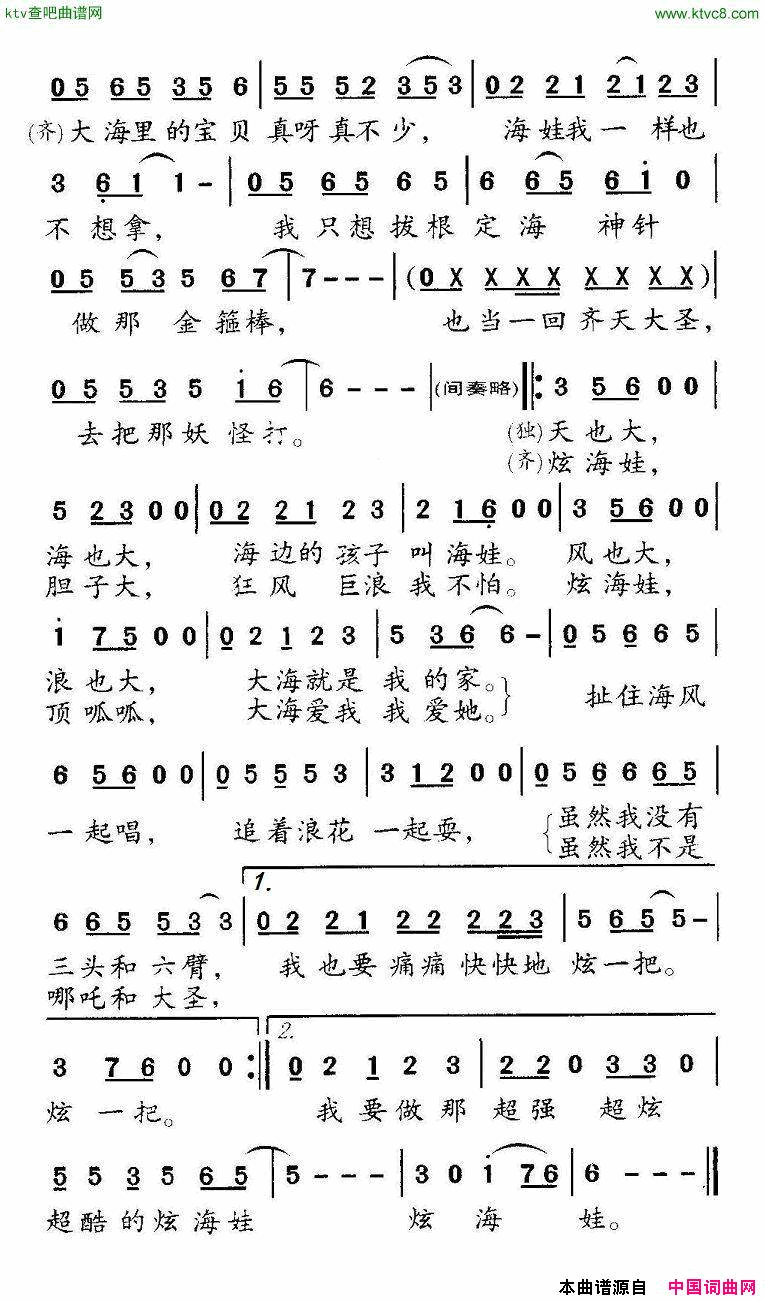 ktv查吧曲谱网 www.ktvc8.com
0 5 6 5 3 5 6 | 5 5 5 2 3 5 3 | 0 2 2 1 2 1 2 3 |
(齐)大海里的宝贝 真呀真不少， 海娃我一样也
3 6 1 1 - | 0 5 6 5 6 5 | 6 6 5 6 1 0 |
不想拿， 我只想拔根定海 神针
0 5 5 3 5 6 7 | 7 - - - | (0 X X X X X X X) |
做那金箍棒， 也当一回齐天大圣，
0 5 5 3 5 1 6 | 6 - - - | (间奏略) ‖: 3 5 6 0 0 |
去把那妖怪打。 (独)天也大，
(齐)炫海娃，
5 2 3 0 0 | 0 2 2 1 2 3 | 2 1 6 0 0 | 3 5 6 0 0 |
海也大， 海边的孩子 叫海娃。 风也大，
胆子大， 狂风 巨浪 我不怕。 炫海娃，
1 7 5 0 0 | 0 2 1 2 3 | 5 3 6 6 - | 0 5 6 6 5 |
浪也大， 大海就是 我的家。 扯住海风
顶呱呱， 大海爱我 我爱她。
6 5 6 0 0 | 0 5 5 5 3 | 3 1 2 0 0 | 0 5 6 6 6 5 |
一起唱， 追着浪花 一起耍， 虽然我没有
虽然我不是
1.
6 6 5 5 3 3 | 0 2 2 1 2 2 2 2 3 | 5 6 5 5 - |
三头和六臂， 我也要痛痛快快地 炫一把。
哪吒和大圣，
2.
3 7 6 0 0 :‖ 0 2 1 2 3 | 2 2 0 3 3 0 |
炫一把。 我要做那 超强 超炫
5 5 3 5 6 5 | 5 - - - | 3 0 1 7 6 | 6 - - - ‖
超酷的炫海娃 炫 海 娃。
本曲谱源自 中国词曲网